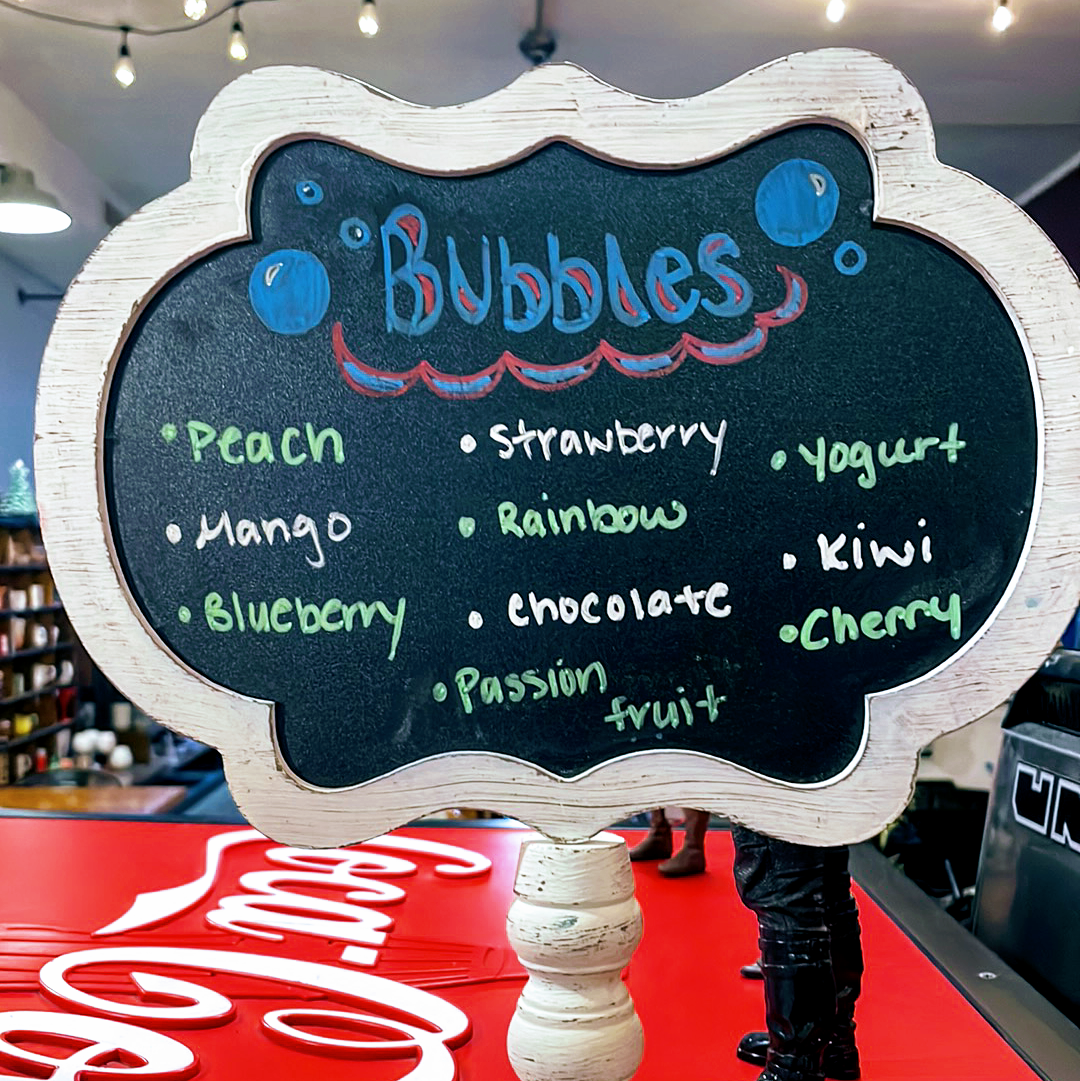 Bubbles
• Peach
• Mango
• Blueberry
• Strawberry
• Rainbow
• chocolate
• Passion
fruit
• Yogurt
• Kiwi
• Cherry
Coca-